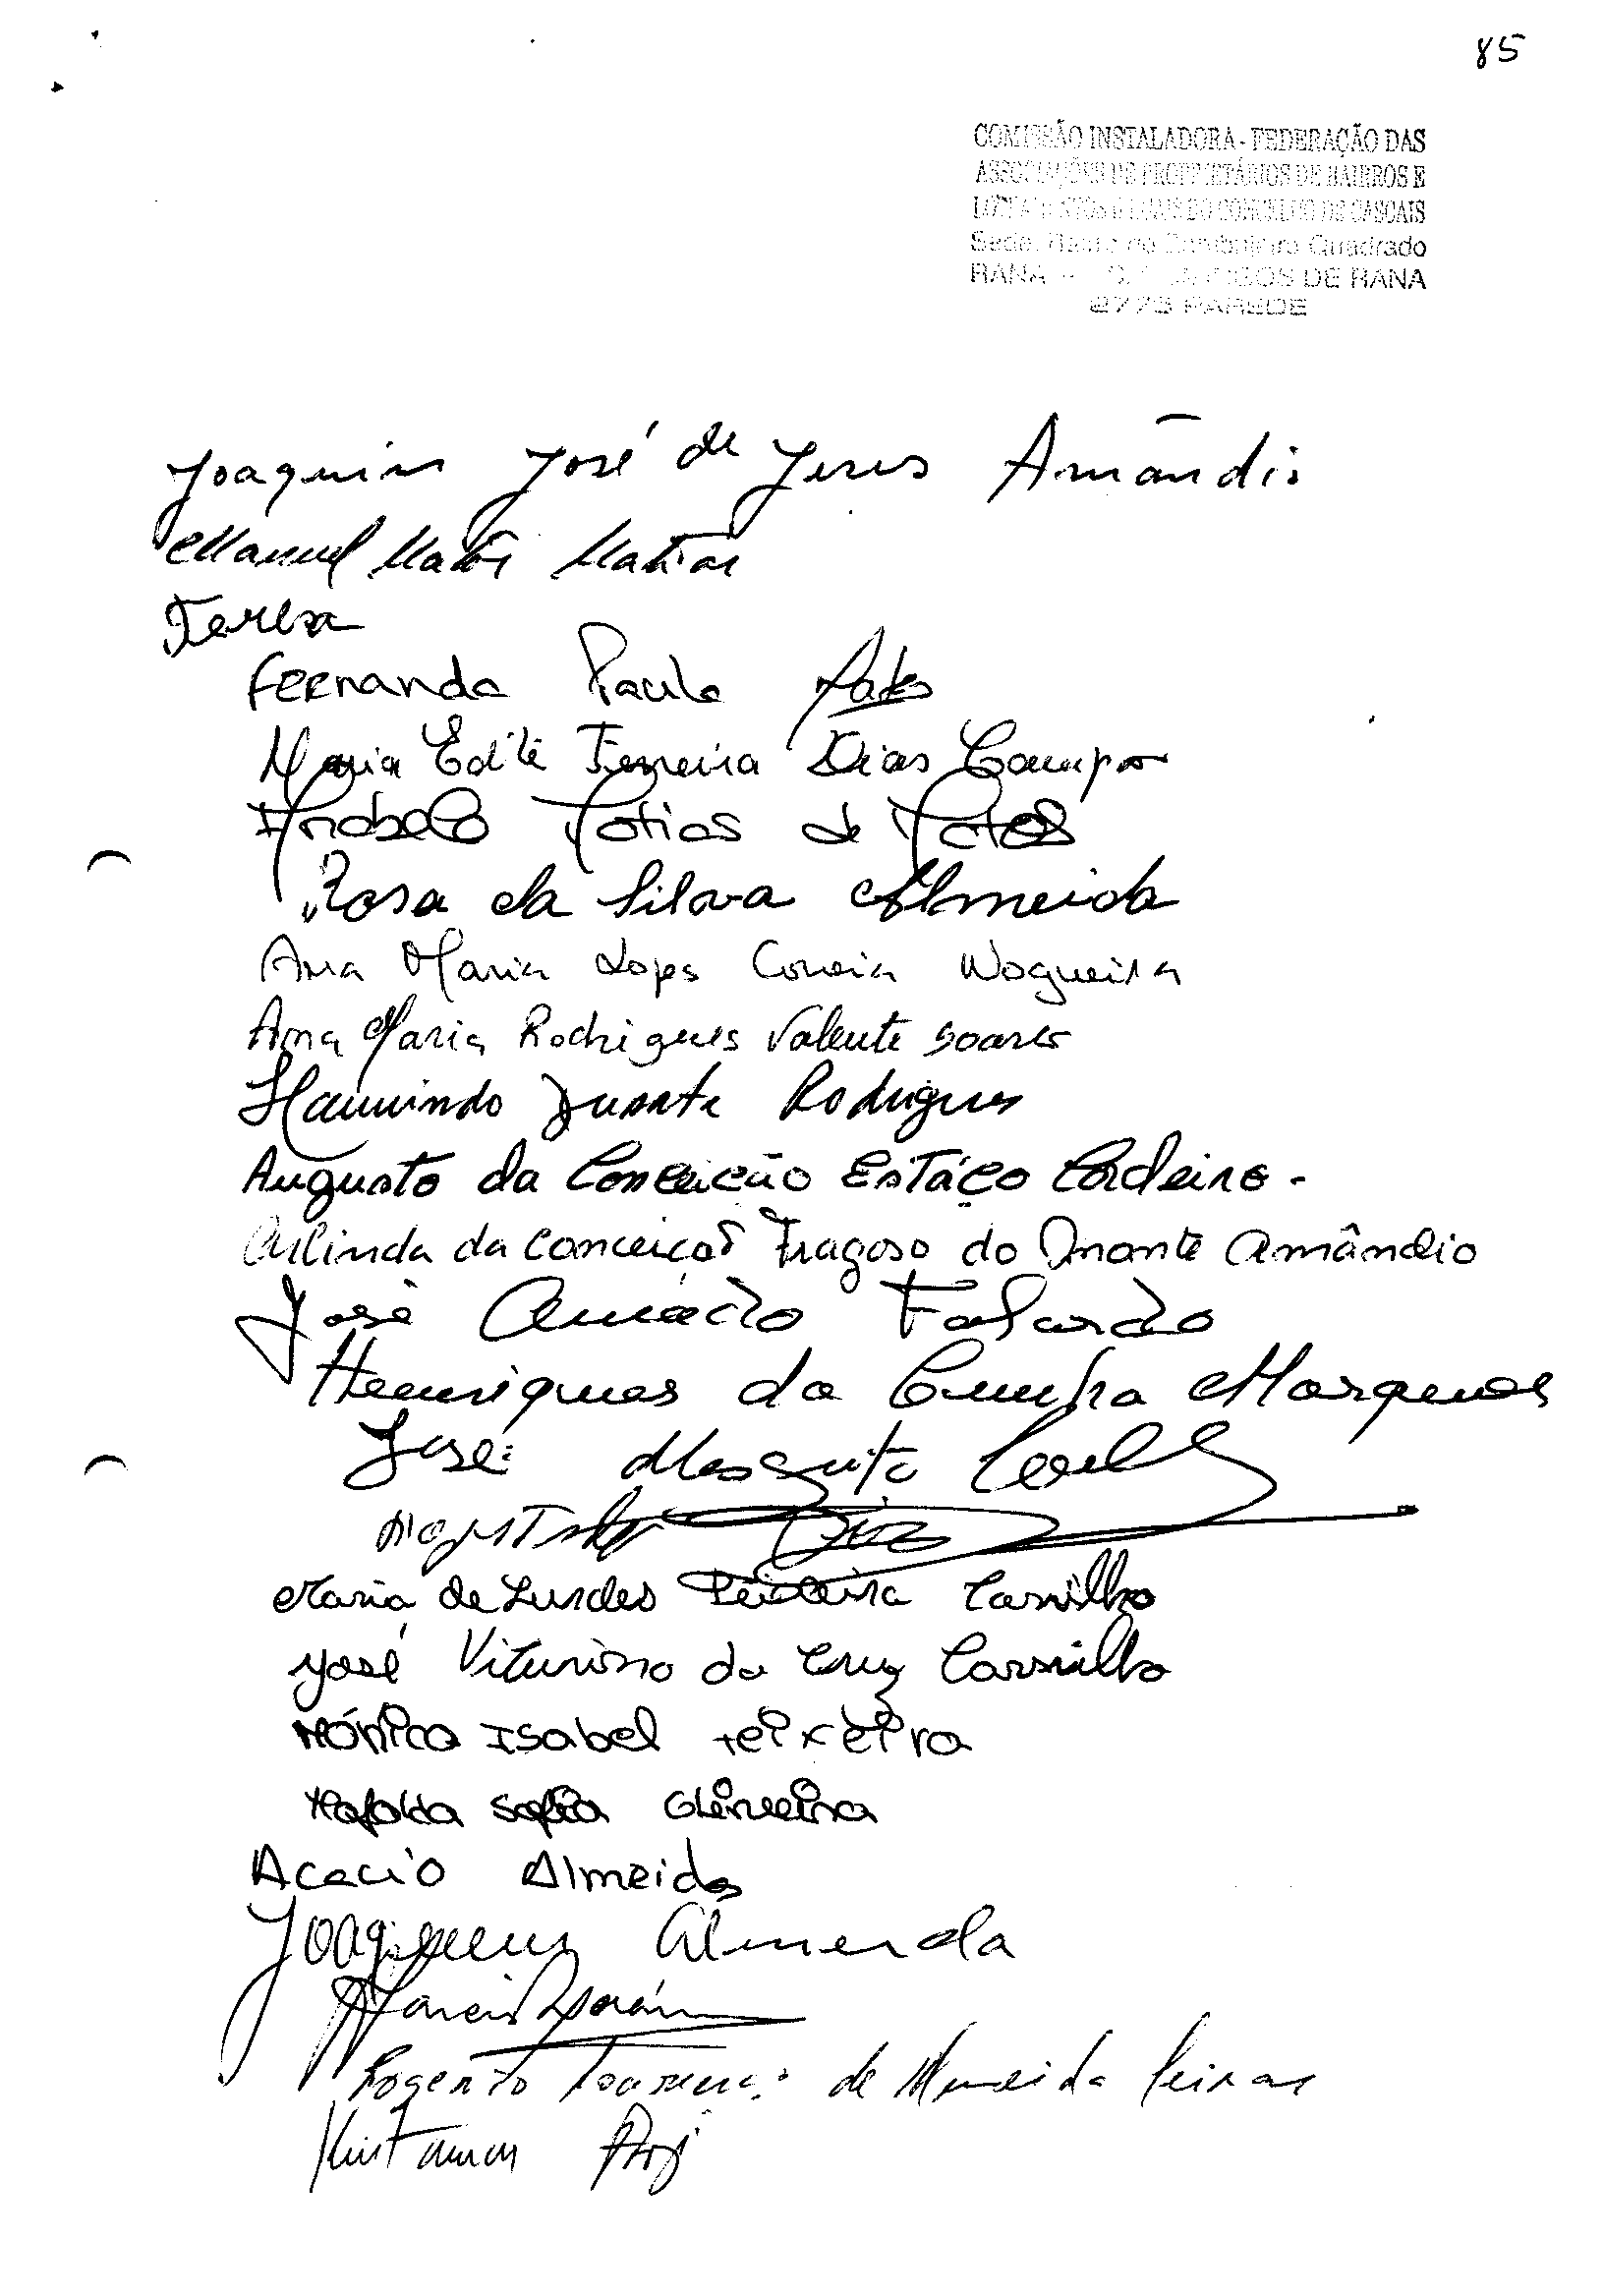 85
COMISSÃO INSTALADORA - FEDERAÇÃO DAS
ASSOCIAÇÕES DE PROPRIETÁRIOS DE BAIRROS E
DO CONCELHO DE CASCAIS
Sede: Quadrado
RANA - DE RANA
2775 PAREDE
Joaquim José de Jesus Amândio
Manuel Matias
Teresa
Fernanda Paula
Maria Edite Ferreira Dias Campos
Matias de Matos
Rosa da Silva Almeida
Ana Maria Lopes Correia Nogueira
Ana Maria Rodrigues Valente Soares
Duarte Rodrigues
Augusto da Conceição Estáço Cordeiro -
Arlinda da Conceição Fragoso do Monte Amândio
José Amácio Falardo
Henriques da Cunha Marques
José Mesquita
Maria de Lurdes Teixeira Carrilho
José Viturino da Cruz Carrilho
Mónica Isabel Teixeira
Mafalda Sofia Oliveira
Acacio Almeida
Joaquim Almeida
Rogerio de Almeida